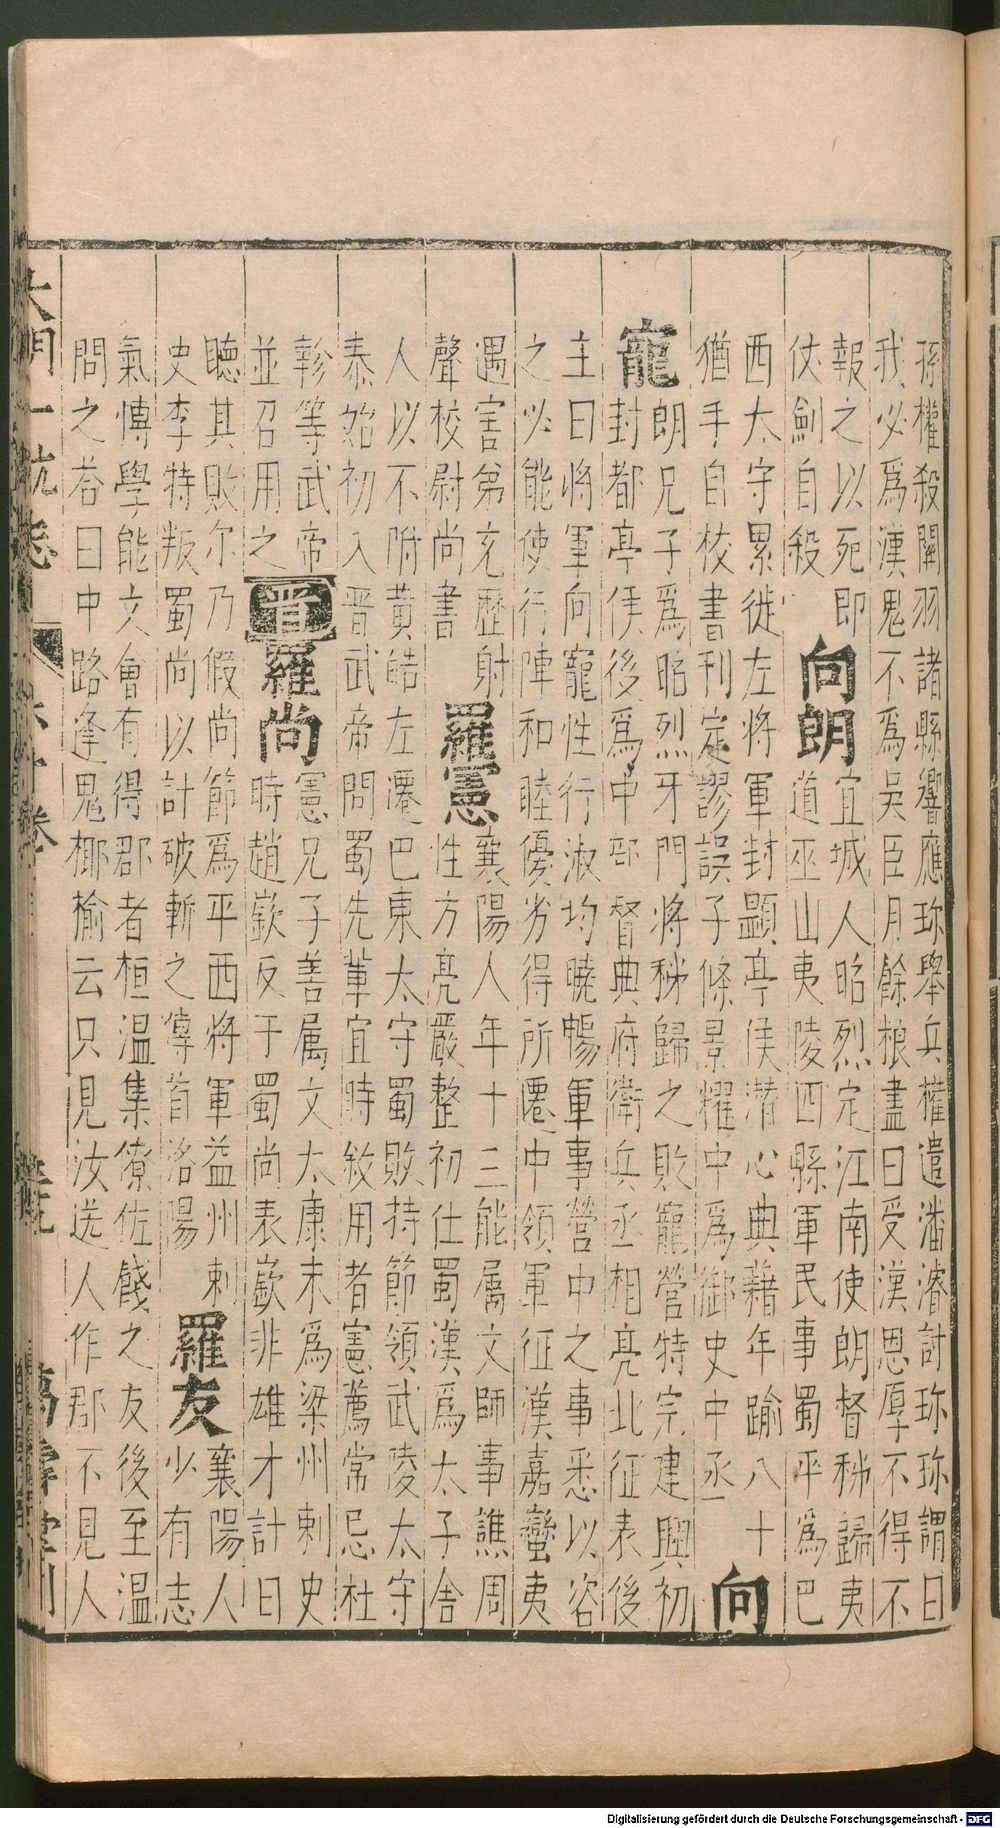 孫權殺關羽諸縣響應珎舉兵權遣潘濬討珎珎謂曰
我必爲漢鬼不爲吳臣月餘粮盡曰受漢恩厚不得不
報之以死即
仗劍自殺
向朗
宜城人昭烈定江南使朗督秭歸夷
道巫山夷陵四縣軍民事蜀平爲巴
西太守累徙左將軍封顯亭侯潜心典藉年踰八十
猶手自校書刊定謬誤子條景耀中爲御史中丞
向
寵
朗兄子爲昭烈牙門將秭歸之敗寵營特完建興初
封都亭侯後爲中部督典府衛兵丞相亮北征表後
主曰將軍向寵性行淑均曉暢軍事營中之事悉以咨
之必能使行陣和睦優劣得所遷中領軍征漢嘉蠻夷
遇害弟充歷射
聲校尉尚書
羅憲
襄陽人年十三能属文師事譙周
性方亮嚴整初仕蜀漢爲太子舍
人以不附黄皓左遷巴東太守蜀敗持節領武陵太守
泰始初入晋武帝問蜀先輩宜時敘用者憲薦常忌杜
軫等武帝
並召用之
晋
羅尚
憲兄子善属文太康末爲梁州刺史
時趙廞反于蜀尚表廞非雄才計日
聽其敗尔乃假尚節爲平西將軍益州刺
史李特叛蜀尚以計破斬之傳首洛陽
羅友
襄陽人
少有志
氣博學能文會有得郡者桓温集僚佐餞之友後至温
問之荅曰中路逢鬼揶揄云只見汝送人作郡不見人
大明一統志
六十卷
萬壽堂刊
Digitalisierung gefördert durch die Deutsche Forschungsgemeinschaft - DFG